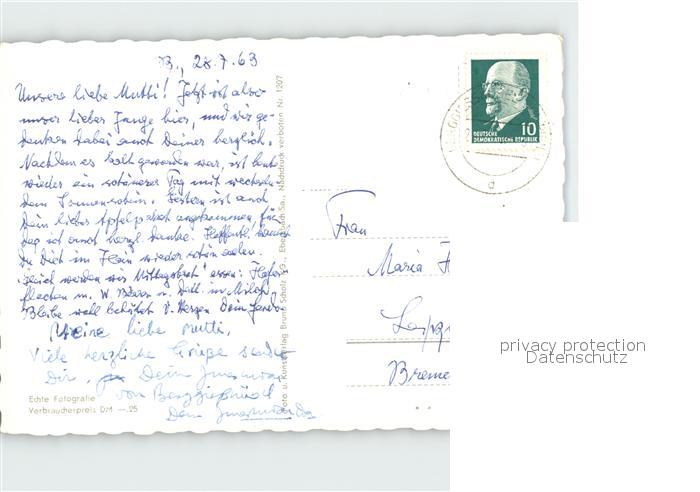 B., 28.7.63
Unsere liebe Mutti! Jetzt ist also
unser lieber Junge hier, und wir ge-
denken dabei auch Deiner herzlich.
Nachdem es kalt geworden war, ist heute
wieder ein schönerer Tag mit wechseln-
dem Sonnenschein. Gestern ist auch
Dein liebes Apfelpaket angekommen, für
das ich auch herzl. danke. Hoffentl.
Du Dich im Heim wieder schön
Gleich werden wir Mittagsbrot essen: Hafer-
flocken m. W. Beeren u. Datt. in Milch.
Bleibe wohl behütet v. Herzen Dein
Meine liebe Mutti,
Viele herzliche Grüße sendet
Dir, Dein
von Berggießhübel
Dein
Echte Fotografie
Verbraucherpreis DM —.25
Foto u. Kunstverlag Bruno Scholz KG., Ebersbach/Sa., Nachdruck verboten Nr. 1207
10
DEUTSCHE
DEMOKRATISCHE REPUBLIK
a
Frau
Maria H
Leipzi
Breme
privacy protection
Datenschutz